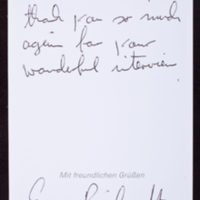 thank you so much
again for your
wonderful interview
Mit freundlichen Grüßen